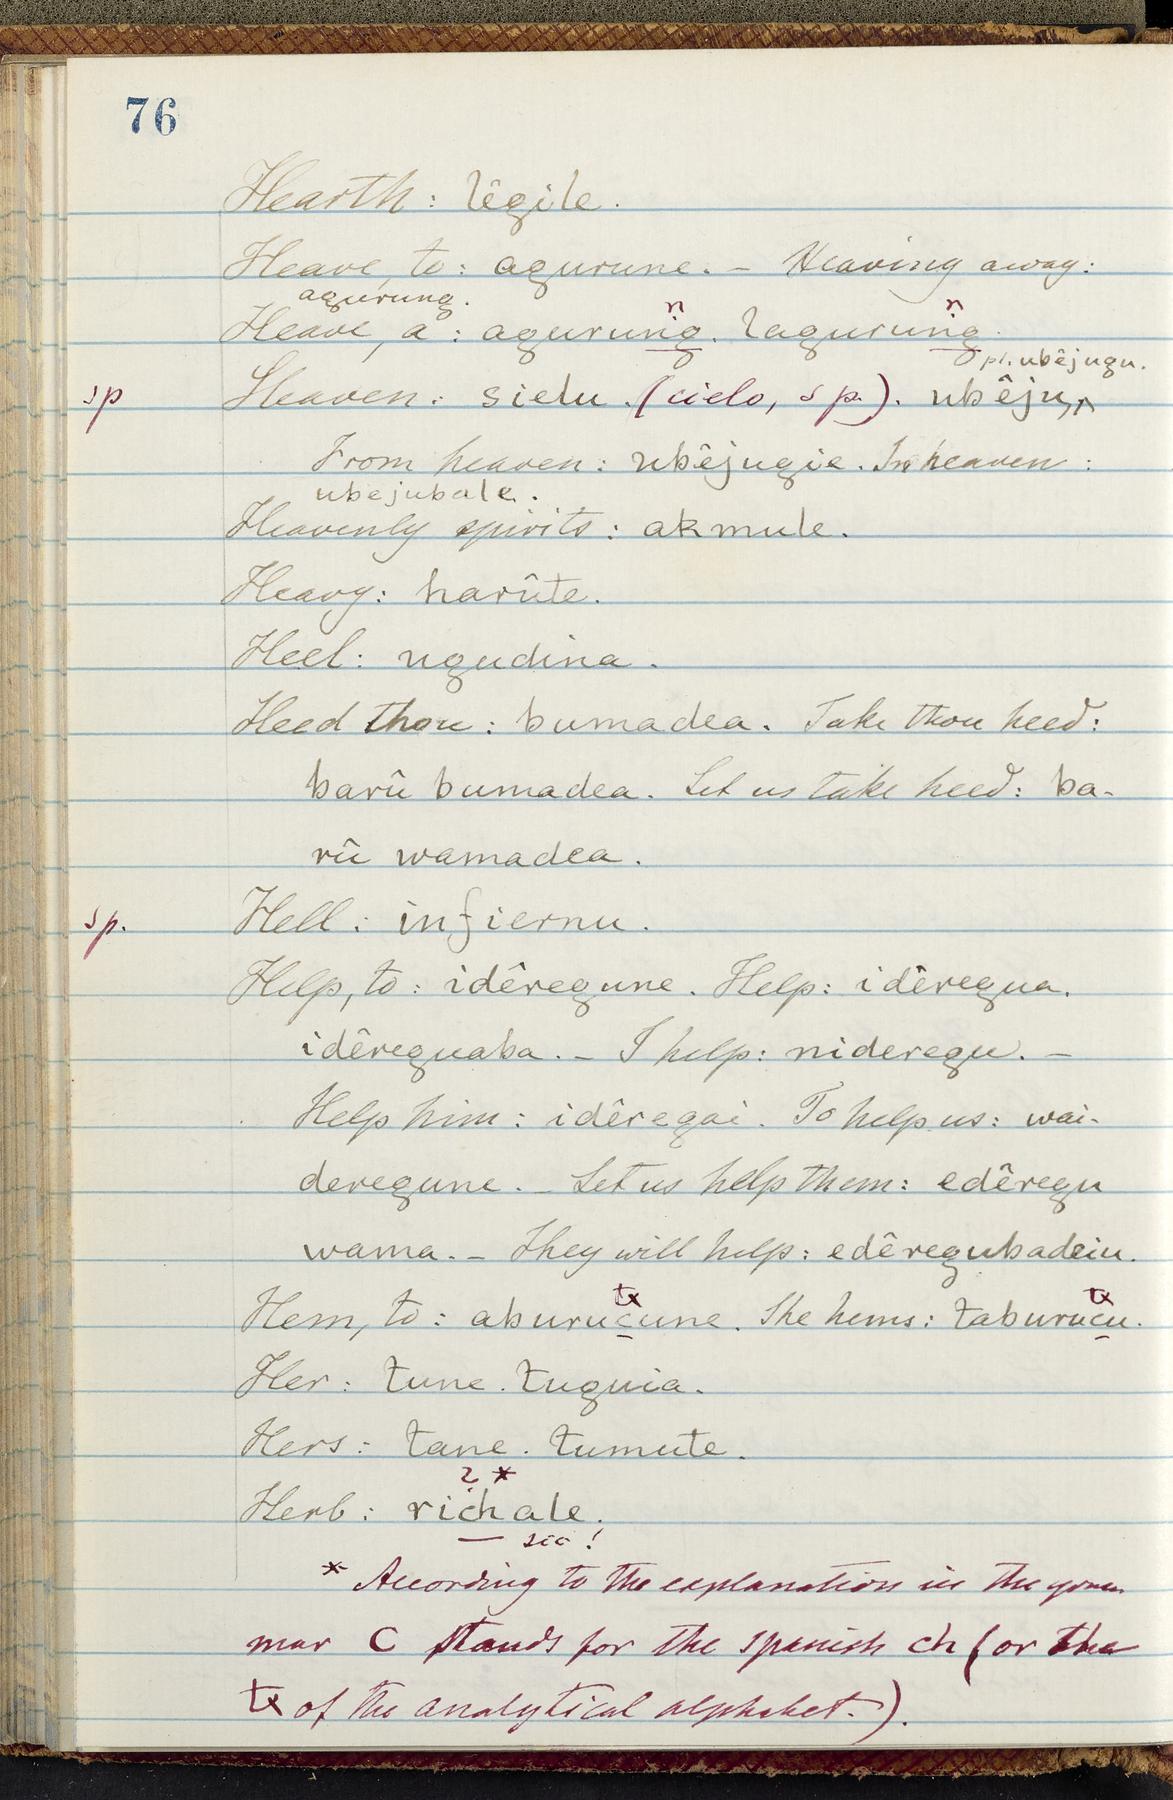 76
Hearth: lêgile.
Heave, to: agurune. – Heaving away:
agurung.
n n
Heave, a: agurung. lagurung.
pl. ubêjugu.
sp Heaven: sielu. (cielo, sp.). ubêju,^
From heaven: ubêjugie. In heaven:
ubejubale.
Heavenly spirits: akmule.
Heavy: harûte.
Heel: ugudina.
Heed thou: bumadea. Take thou heed:
barû bumadea. Let us take heed: ba-
rû wamadea.
sp. Hell: infiernu.
Help, to: idêregune. Help: idêregua.
idêreguaba. – I help: nideregu. –
Help him: idêregai. To help us: wai-
deregune. – Let us help them: edêregu
wama. – They will help: edêregubadeiu.
tx tx
Hem, to: aburucune. She hems: taburucu.
Her: tune. tuguia.
Hers: tane. tumute.
? *
Herb: richale.
sic!
* According to the explanation in the gram
mar C stands for the spanish ch (or the
tx of the analytical alphabet.).